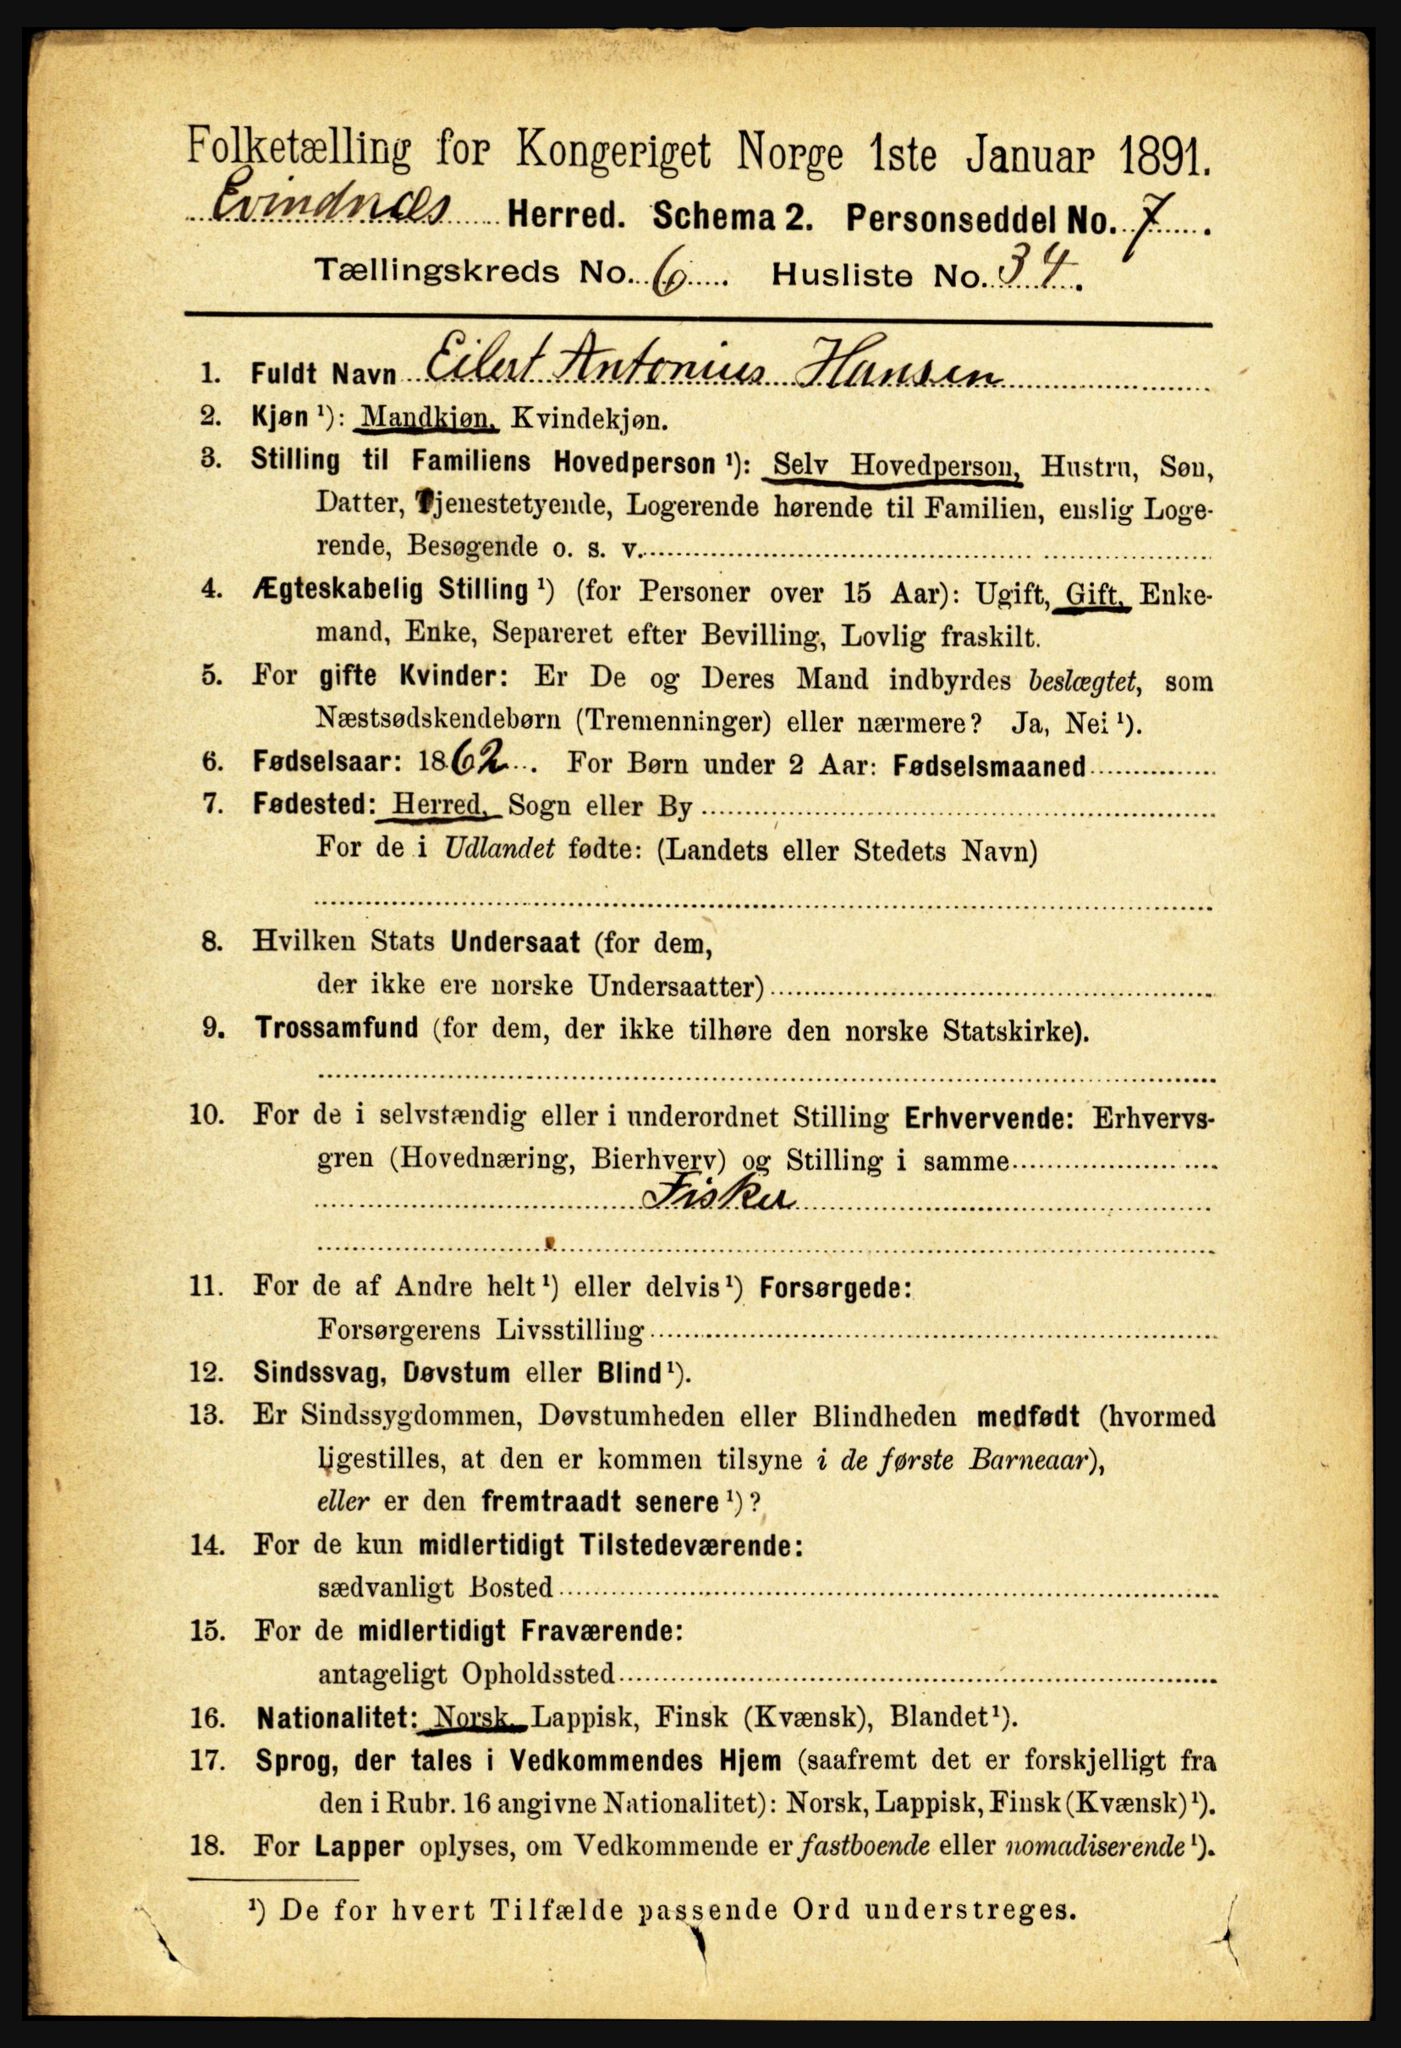 Folketælling for Kongeriget Norge 1ste Januar 1891.
Evindnæs Herred. Schema 2. Personseddel No. 7.
Tællingskreds No. 6. Husliste No. 34.
1. Fuldt Navn Eilert Antonius Hansen
2. Kjøn ¹): Mandkjøn, Kvindekjøn.
3. Stilling til Familiens Hovedperson ¹): Selv Hovedperson, Hustru, Søn,
Datter, Tjenestetyende, Logerende hørende til Familien, enslig Loge-
rende, Besøgende o. s. v.
4. Ægteskabelig Stilling ¹) (for Personer over 15 Aar): Ugift, Gift, Enke-
mand, Enke, Separeret efter Bevilling, Lovlig fraskilt.
5. For gifte Kvinder: Er De og Deres Mand indbyrdes beslægtet, som
Næstsødskendebørn (Tremenninger) eller nærmere? Ja, Nei ¹).
6. Fødselsaar: 1862. For Børn under 2 Aar: Fødselsmaaned
7. Fødested: Herred, Sogn eller By
For de i Udlandet fødte: (Landets eller Stedets Navn)
8. Hvilken Stats Undersaat (for dem,
der ikke ere norske Undersaatter)
9. Trossamfund (for dem, der ikke tilhøre den norske Statskirke).
10. For de i selvstændig eller i underordnet Stilling Erhvervende: Erhvervs-
gren (Hovednæring, Bierhverv) og Stilling i samme
Fisker
11. For de af Andre helt ¹) eller delvis ¹) Forsørgede:
Forsørgerens Livsstilling
12. Sindssvag, Døvstum eller Blind ¹).
13. Er Sindssygdommen, Døvstumheden eller Blindheden medfødt (hvormed
ligestilles, at den er kommen tilsyne i de første Barneaar),
eller er den fremtraadt senere ¹)?
14. For de kun midlertidigt Tilstedeværende:
sædvanligt Bosted
15. For de midlertidigt Fraværende:
antageligt Opholdssted
16. Nationalitet: Norsk, Lappisk, Finsk (Kvænsk), Blandet ¹).
17. Sprog, der tales i Vedkommendes Hjem (saafremt det er forskjelligt fra
den i Rubr. 16 angivne Nationalitet): Norsk, Lappisk, Finsk (Kvænsk) ¹).
18. For Lapper oplyses, om Vedkommende er fastboende eller nomadiserende ¹).
¹) De for hvert Tilfælde passende Ord understreges.